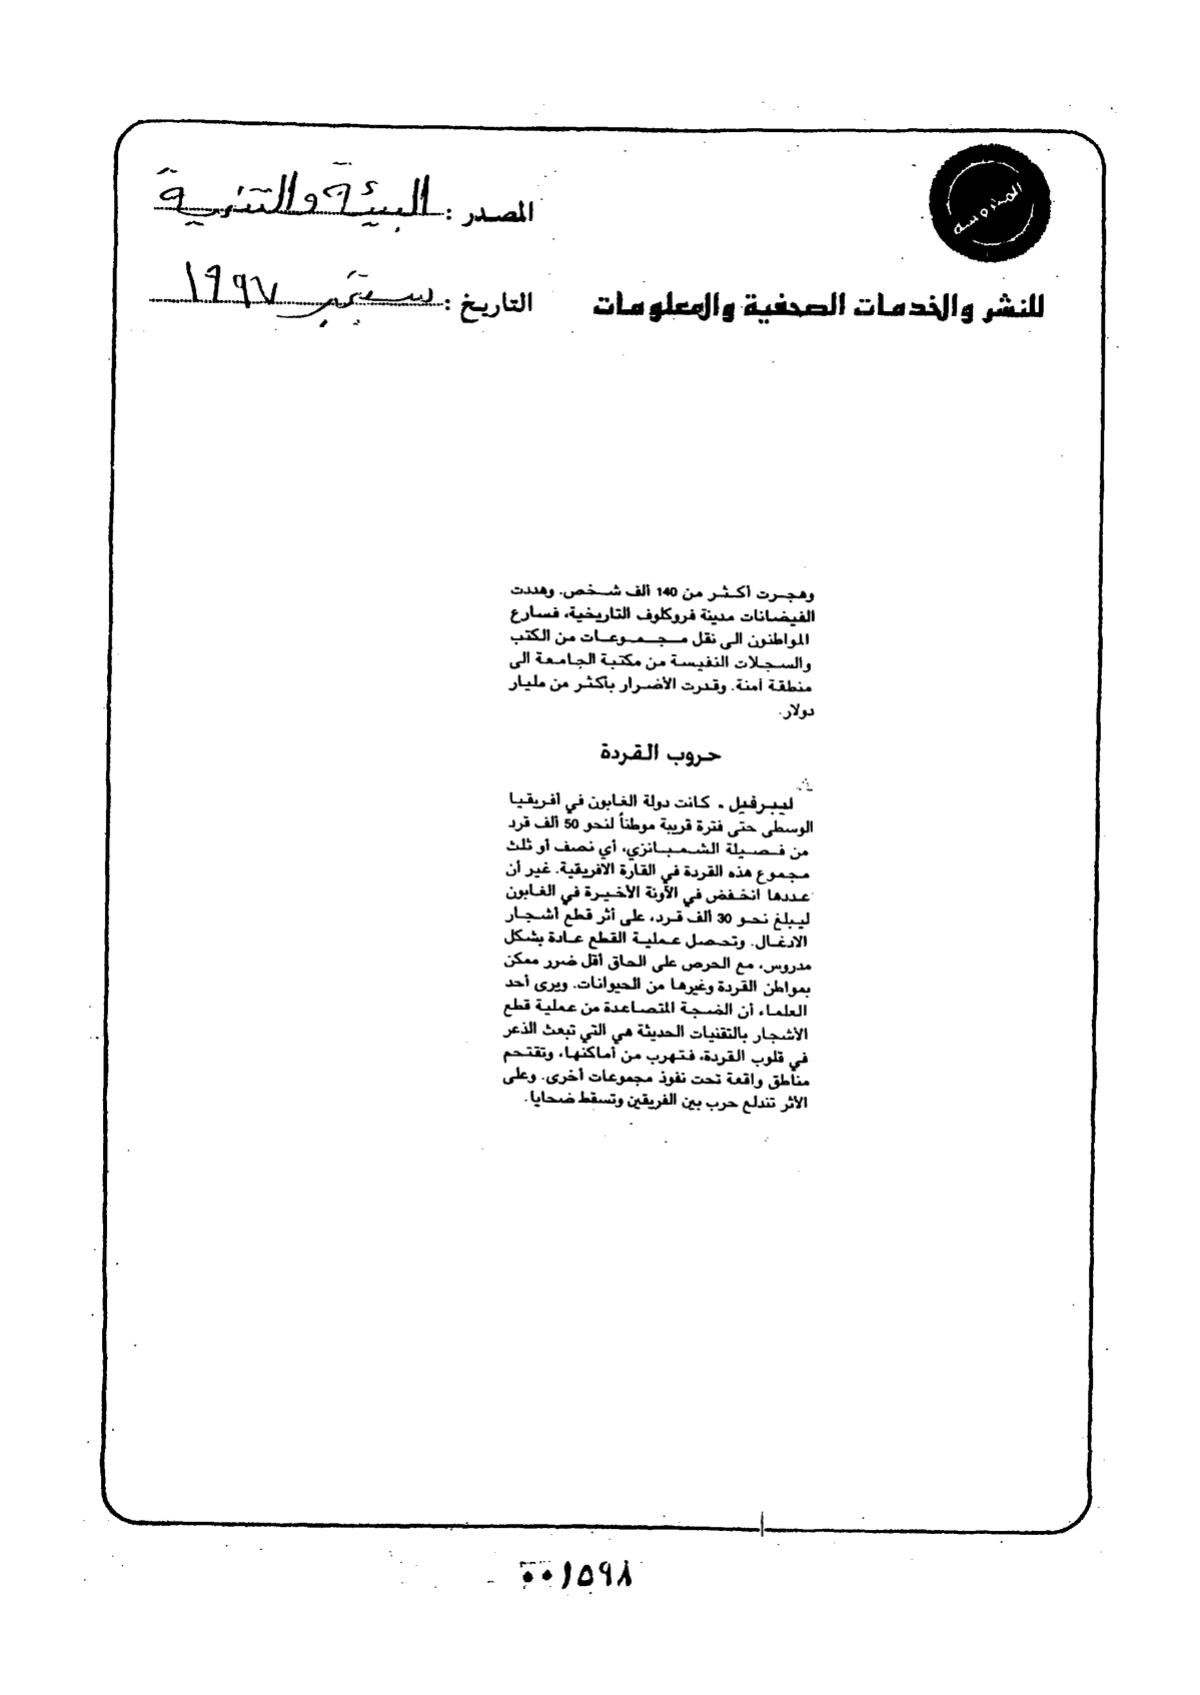 المحروسة
المصدر : البيئة والتنمية
للنشر والخدمات الصحفية والمعلومات
التاريخ : سبتمبر ١٩٩٧
وهجرت أكثر من 140 ألف شخص. وهددت
الفيضانات مدينة فروكلوف التاريخية، فسارع
المواطنون الى نقل مجموعات من الكتب
والسجلات النفيسة من مكتبة الجامعة الى
منطقة آمنة. وقدرت الأضرار بأكثر من مليار
دولار.
حروب القردة
ليبرفيل - كانت دولة الغابون في أفريقيا
الوسطى حتى فترة قريبة موطناً لنحو 50 ألف قرد
من فصيلة الشمبانزي، أي نصف أو ثلث
مجموع هذه القردة في القارة الافريقية. غير أن
عددها انخفض في الآونة الأخيرة في الغابون
ليبلغ نحو 30 ألف قرد، على أثر قطع أشجار
الادغال. وتحصل عملية القطع عادة بشكل
مدروس، مع الحرص على الحاق أقل ضرر ممكن
بمواطن القردة وغيرها من الحيوانات. ويرى أحد
العلماء أن الضجة المتصاعدة من عملية قطع
الأشجار بالتقنيات الحديثة هي التي تبعث الذعر
في قلوب القردة، فتهرب من أماكنها، وتقتحم
مناطق واقعة تحت نفوذ مجموعات أخرى. وعلى
الاثر تندلع حرب بين الفريقين وتسقط ضحايا.
٠٠١٥٩٨